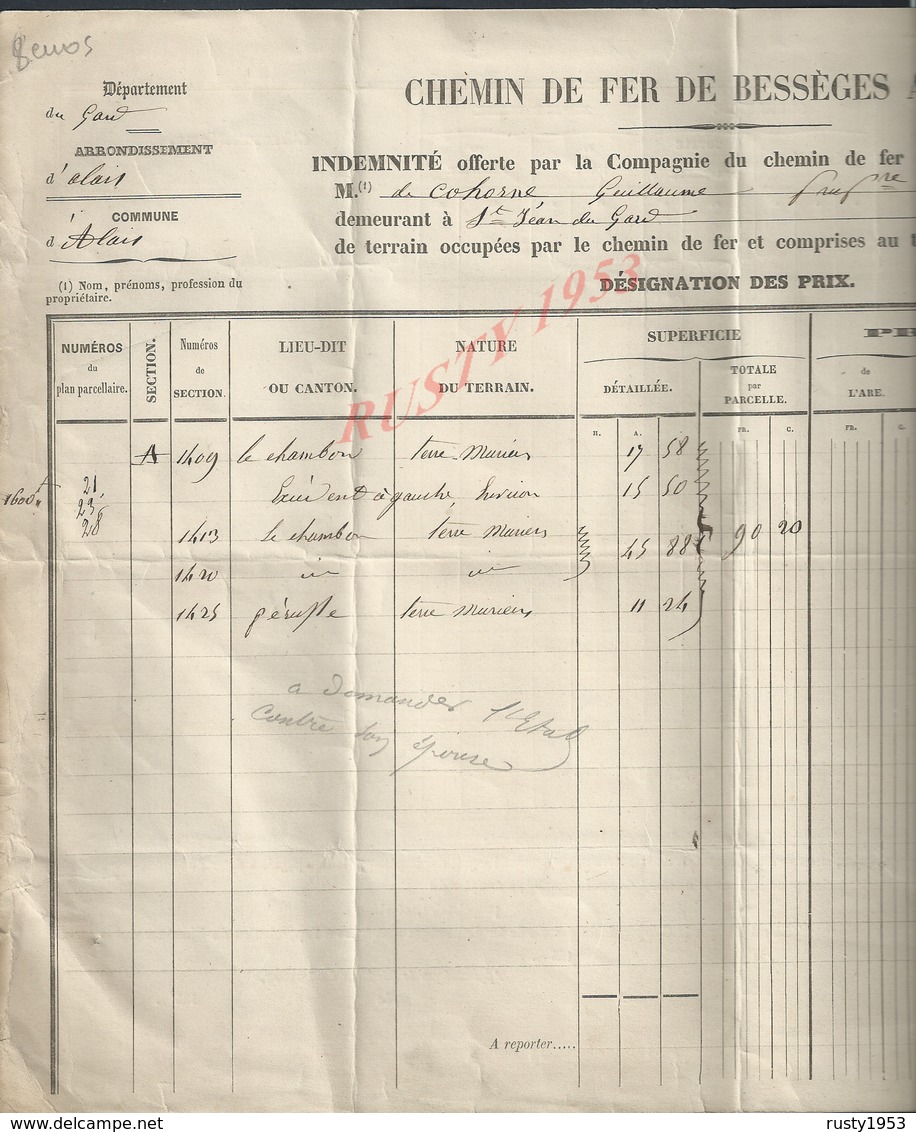 Département
du Gard
ARRONDISSEMENT
d'alais
COMMUNE
d'Alais
(1) Nom, prénoms, profession du
propriétaire.
CHEMIN DE FER DE BESSÈGES A
INDEMNITÉ offerte par la Compagnie du chemin de fer
M.(1) de Cohorne Guillaume
demeurant à St Jéan du Gard
de terrain occupées par le chemin de fer et comprises au t
DÉSIGNATION DES PRIX.
RUSTY 1953
NUMÉROS du plan parcellaire.
SECTION.
Numéros de SECTION.
LIEU-DIT OU CANTON.
NATURE DU TERRAIN.
SUPERFICIE
DÉTAILLÉE.
TOTALE par PARCELLE.
PR
de L'ARE.
H. A. FR. C. FR. C.
A 1409 le chambon terre Muriers 17 58
1600 21 à gauche 15 50
23
28 1413 le chambon terre Muriers 45 88 90 20
1420 id id
1425 terre muriers 11 24
a Demander
Contre son épouse
A reporter.....
delcampe.net
rusty1953